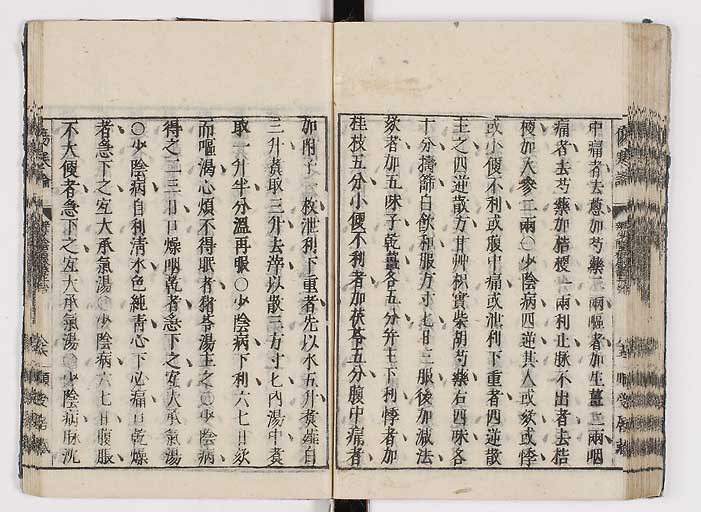 中痛者去葱加芍藥二兩嘔者加生薑二兩咽
痛者去芍藥加桔梗一兩利止脉不出者去桔
梗加人參二兩○少陰病四逆其人或欬或悸
或小便不利或腹中痛或泄利下重者四逆散
主之四逆散方甘艸枳實柴胡芍藥右四味各
十分擣篩白飲和服方寸七日三服後加減法
欬者加五味子乾薑各五分并主下利悸者加
桂枝五分小便不利者加茯苓五分腹中痛者
加附子一枚泄利下重者先以水五升煑薤白
三升煑取三升去滓以散三方寸匕內湯中煑
取一升半分溫再服○少陰病下利六七日欬
而嘔渴心煩不得眠者豬苓湯主之○少陰病
得之二三日口燥咽乾者急下之宜大承氣湯
○少陰病自利清水色純青心下必痛口乾燥
者急下之宜大承氣湯○少陰病六七日腹脹
不大便者急下之宜大承氣湯○少陰病脉沉